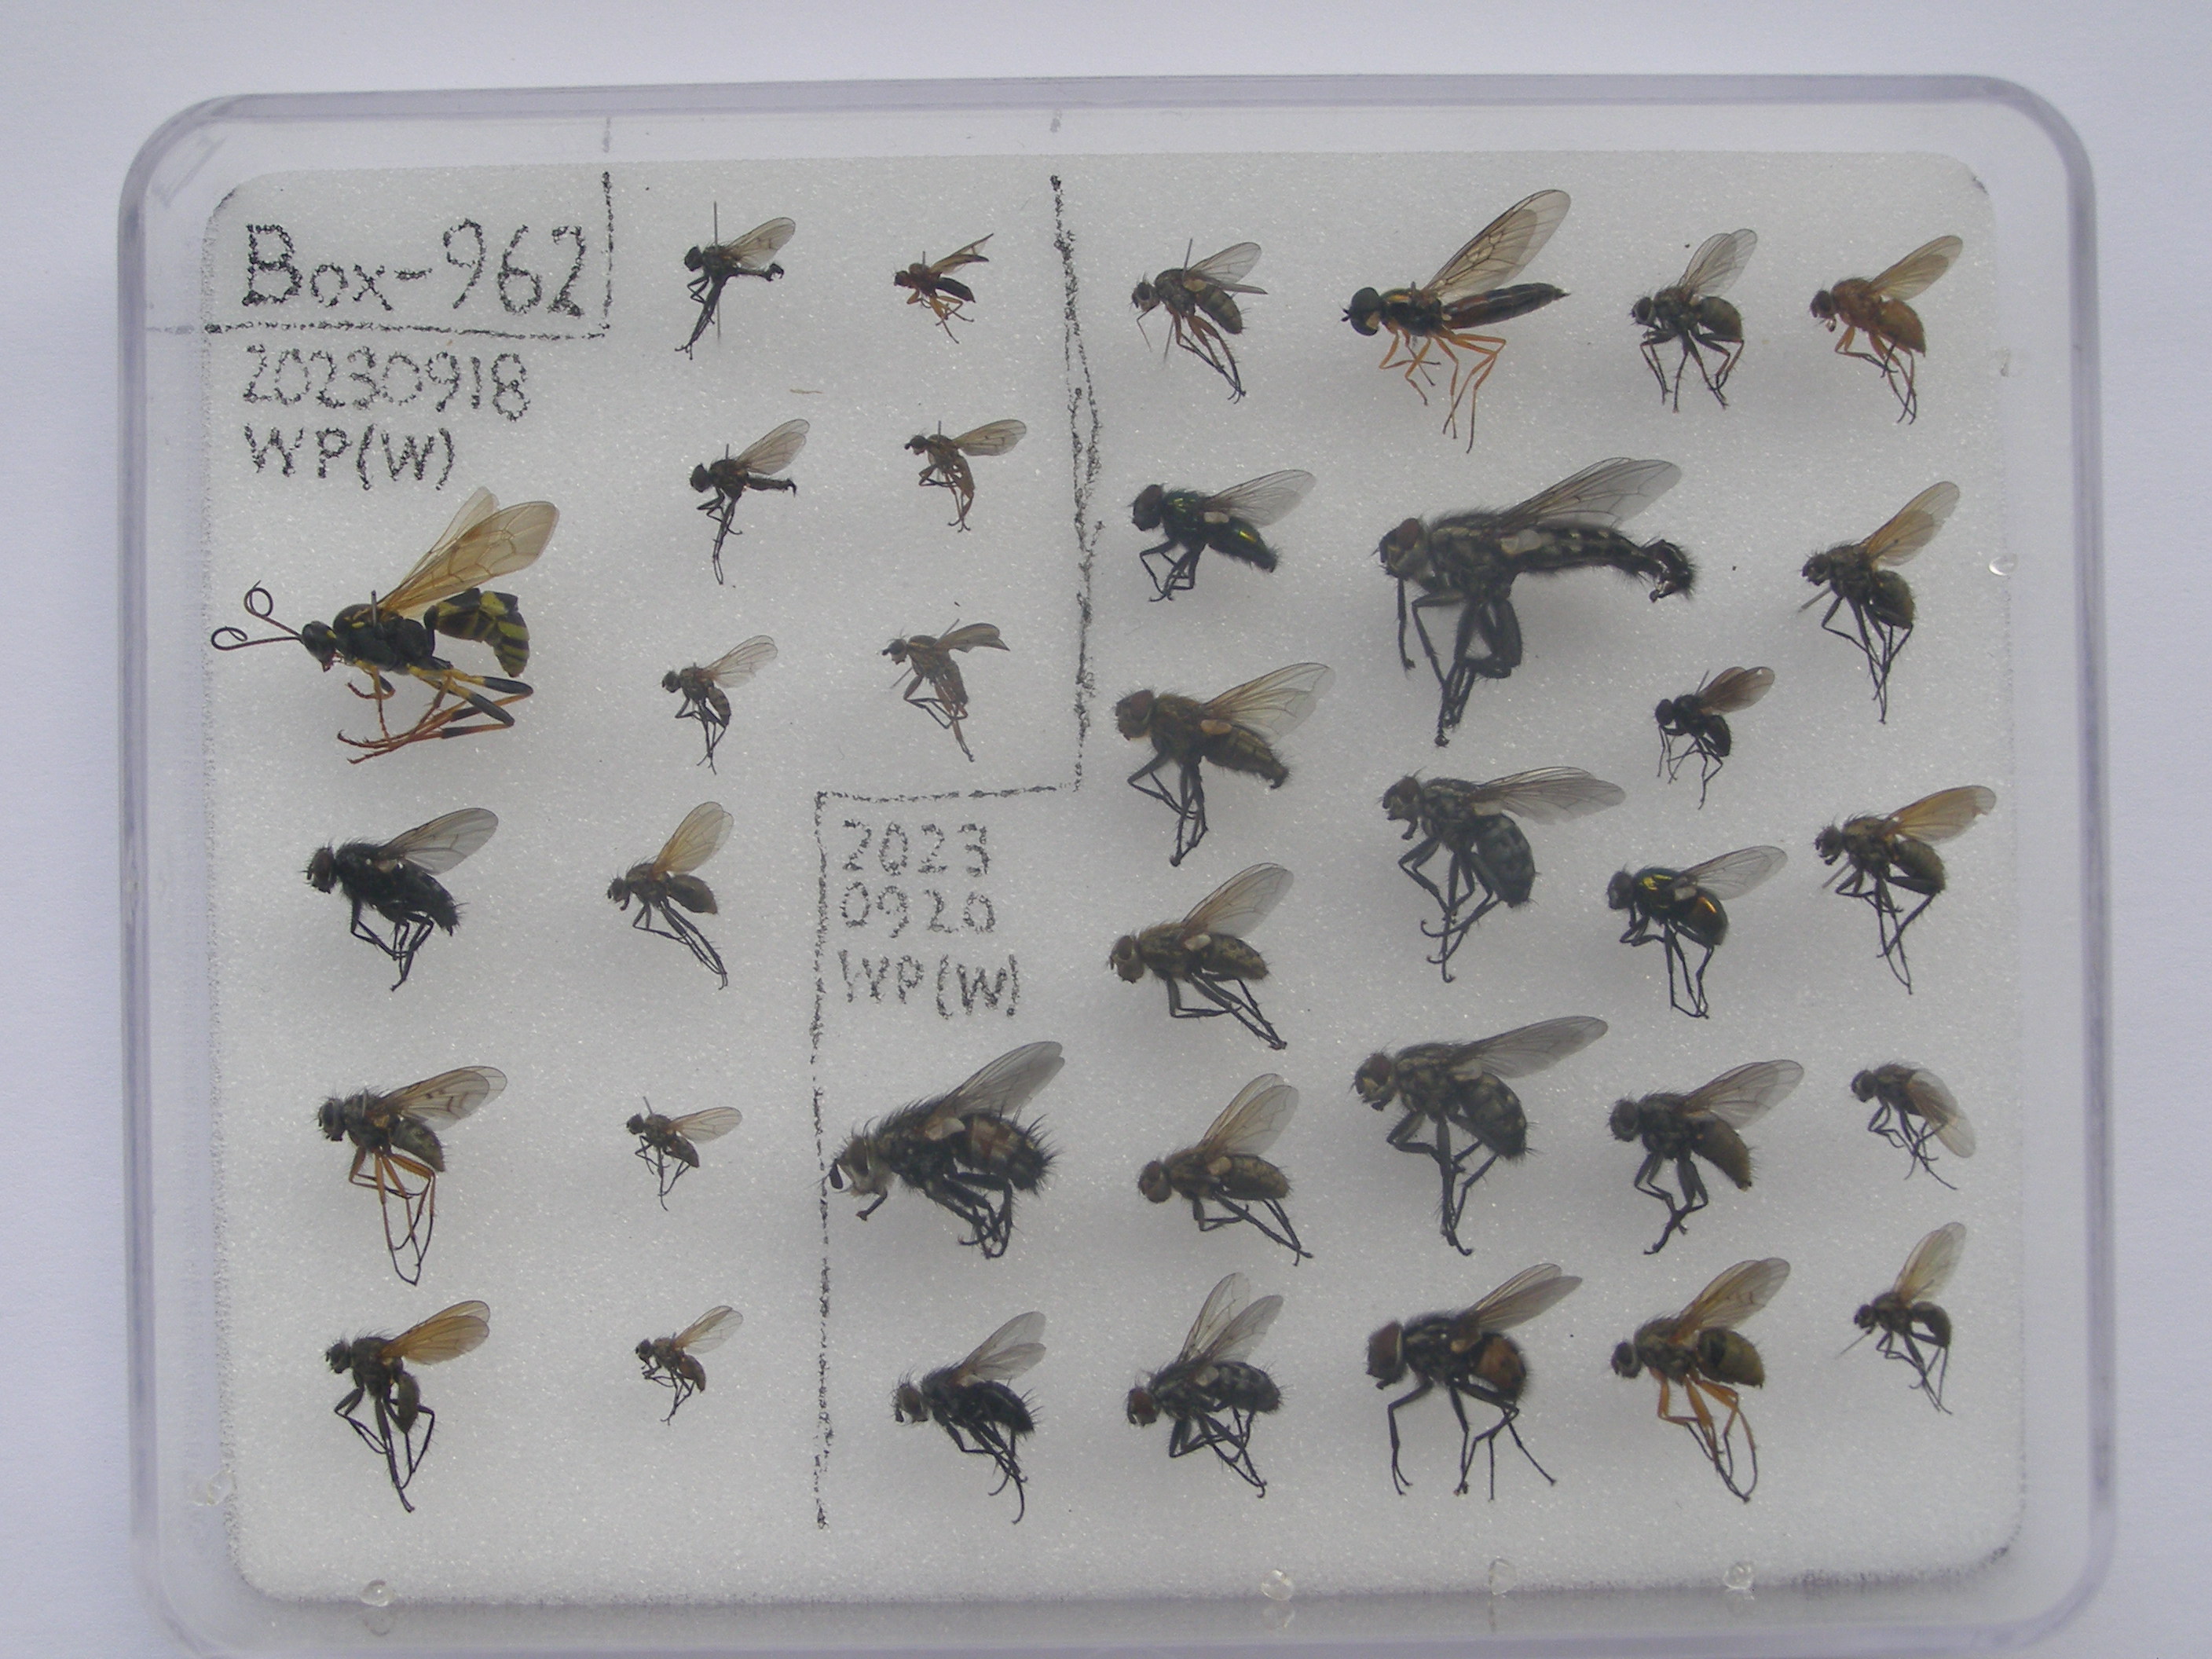 Box-962
20230918
WP(W)
2023
0920
WP(W)